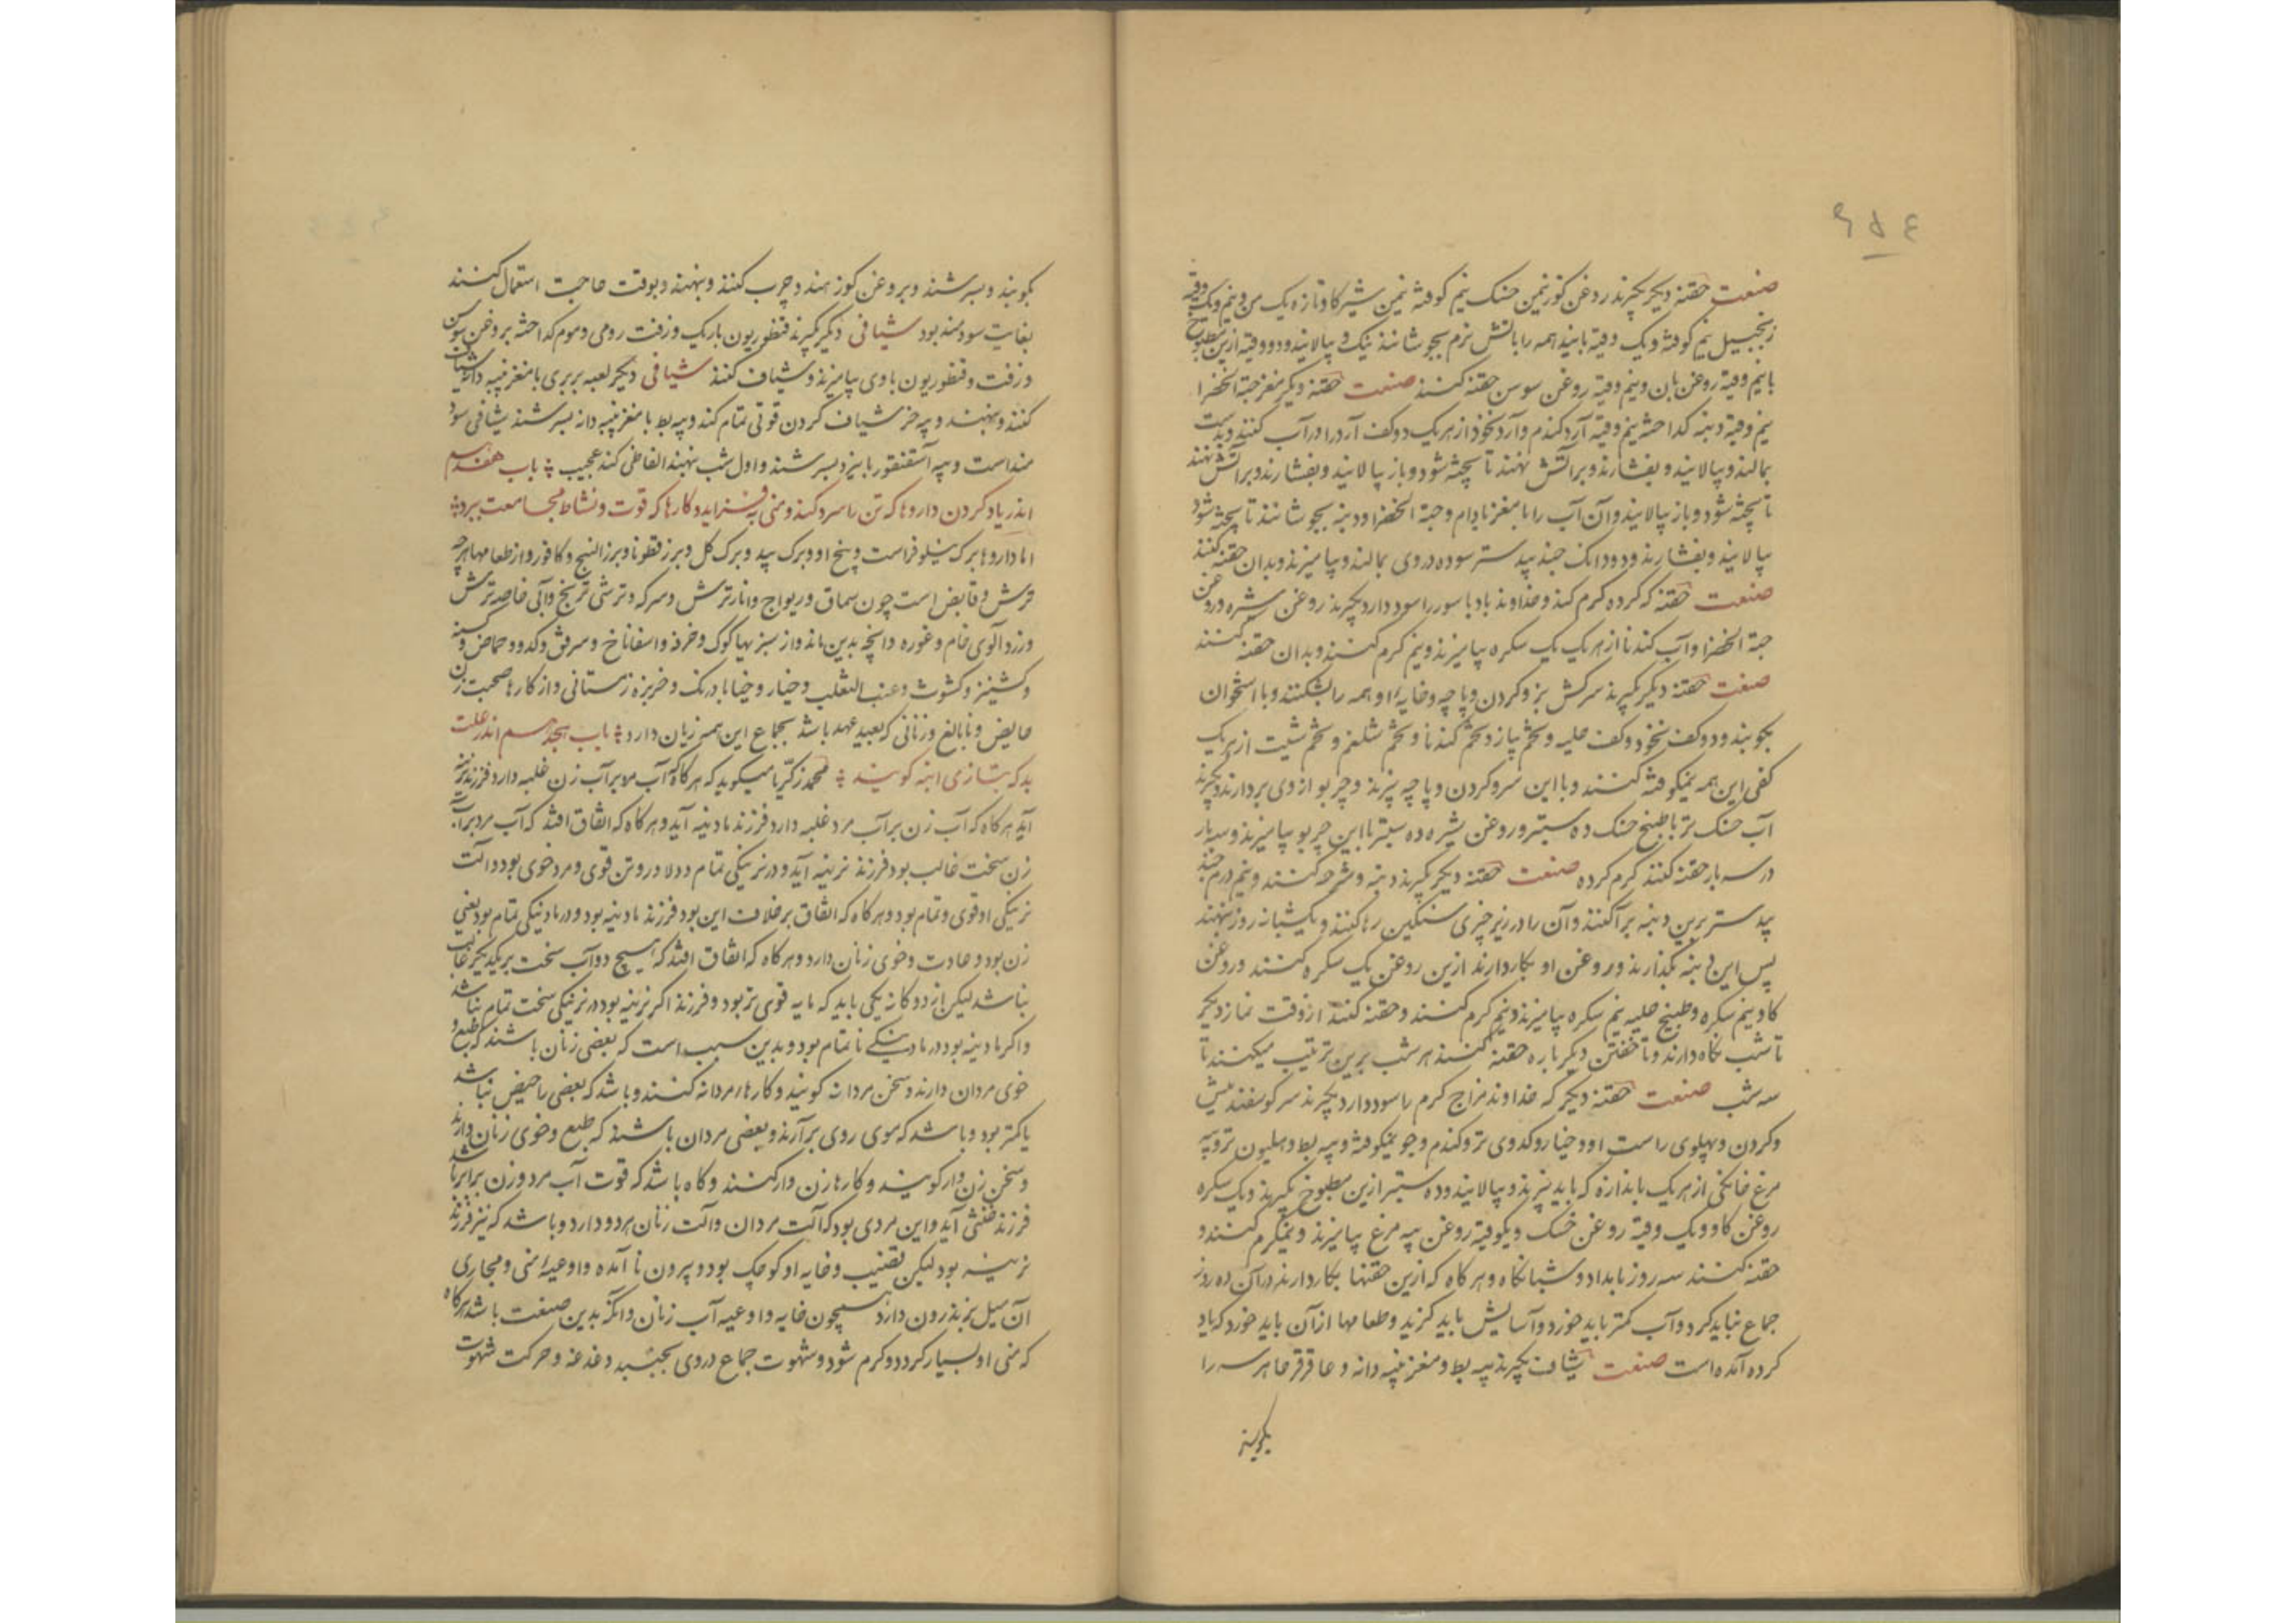 ۶۵۴
صنعت حقنه دیکر بکیرند روغن کوز نیمن حسک نیم کوفته نیمن شیر کاو تازه یک من و نیم و یک وقیه
زنجبیل نیم کوفته و یک وقیه بانید همه را باتش نرم بجوشانند نیک و بپالایند و دو وقیه ازین مطبوخ
با نیم وقیه روغن بان و نیم وقیه روغن سوسن حقنه کنند صنعت حقنه دیکر مغز حبة الخضرا
نیم وقیه دنبه کداخته نیم وقیه آرد کندم و آرد نخود از هر یک دو کف آرد را در آب کنند و بدست
بمالند و بپالایند و بفشارند و بر آتش نهند تا پخته شود و باز بپالایند و بفشارند و بر آتش نهند
تا پخته شود و باز بپالایند و آن آب را با مغز بادام و حبة الخضرا و دنبه بجوشانند تا پخته شود
بپالایند و بفشارند و دو دانک جند بیدستر سوده در وی بمالند و بیامیزند و بدان حقنه کنند
صنعت حقنه که کرده کرم کند و خداوند باد باسور را سود دارد بکیرند روغن شیره و روغن
حبة الخضرا و آب کندنا از هر یک یک سکره بیامیزند و نیم کرم کنند و بدان حقنه کنند
صنعت حقنه دیکر بکیرند سر کش بز و کردن و پاچه و خایه او همه را بشکنند و با استخوان
بکوبند و دو کف نخود و کف حلبه و تخم پیاز و تخم کندنا و تخم شلغم و تخم شبت از هر یک
کفی این همه نیمکوفته کنند و با این سر و کردن و پاچه بپزند و چربو از وی بردارند و بکیرند
آب حسک تر با طبیخ حسک ده ستیر و روغن شیره ده ستیر با این چربو بیامیزند و سه بار
در سه بار حقنه کنند کرم کرده صنعت حقنه دیکر بکیرند دنبه و شرحه کنند و نیم درم جند
بیدستر برین دنبه پراکنند و آن را در زیر چیزی سنکین رها کنند و یک شبانه روز بنهند
پس این دنبه بکدازند و روغن او بکار دارند ازین روغن یک سکره کنند و روغن
کاو نیم سکره و طبیخ حلبه نیم سکره بیامیزند و نیم کرم کنند و حقنه کنند از وقت نماز دیکر
تا شب نکاه دارند و تا خفتن دیکر باره حقنه کنند هر شب برین ترتیب میکنند تا
سه شب صنعت حقنه دیکر که خداوند مزاج کرم را سود دارد بکیرند سر کوسفند میش
و کردن و پهلوی راست او و خیار و کدوی تر و کندم و جو نیمکوفته و پیه بط و هلیون تر و پیه
مرغ خانکی از هر یک باندازه که باید بپزند و بپالایند و ده ستیر ازین مطبوخ بکیرند و یک سکره
روغن کاو و یک وقیه روغن خسک و یکوقیه روغن پیه مرغ بیامیزند و نیمکرم کنند و
حقنه کنند سه روز بامداد و شبانکاه و هر کاه که ازین حقنها بکار دارند در آن ده روز
جماع نباید کرد و آب کمتر باید خورد و آسایش باید کزید و طعامها از آن باید خورد که یاد
کرده آمده است صنعت شیاف بکیرند پیه بط و مغز پنبه دانه و عاقرقرحا هر سه را
بکوبند
بکوبند و بسرشند و بروغن کوز هند و چرب کنند و بنهند و بوقت حاجت استعمال کنند
بغایت سودمند بود شیافی دیکر بکیرند قنطوریون باریک و زفت رومی و موم کداخته بروغن سوسن
و زفت و قنطوریون با وی بیامیزند و شیاف کنند شیافی دیکر لعبه بربری با مغز پنبه دانه شیاف
کنند و بنهند و پیه خر شیاف کردن قوتی تمام کند و پیه بط با مغز پنبه دانه بسرشند شیافی سود
منداست و پیه اسقنقور با بیزد بسرشند و اول شب بنهند انعاظی کند عجیب باب هفدهم
اندر یاد کردن داروها که تن را سرد کند و منی نه فزاید و کارها که قوت و نشاط مجامعت ببرد
اما داروها برک نیلوفر است و بیخ او و برک بید و برک کل و برزقطونا و بزر البنج و کافور و از طعامها هر چه
ترش و قابض است چون سماق و ریواج و انار ترش و سرکه و ترشی ترنج و آبی خاصه ترش
و زردآلوی خام و غوره و انچه بدین ماند و از سبزیها کوک و خرفه و اسفاناخ و سرمق و کدو و حماض و کسنه
و کشنیز و کشوث و عنب الثعلب و خیار و خیابادرنک و خربزه زمستانی و از کارها صحبت زن
حایض و نابالغ و زنانی که بعید عهد باشد بجماع این همه زیان دارد باب هجدهم اندر علت
بد که بتازی ابنه کویند محمد زکریا میکوید که هر کاه که آب مرد بر آب زن غلبه دارد فرزند نرینه
آید هر کاه که آب زن بر آب مرد غلبه دارد فرزند مادینه آید و هر کاه که اتفاق افتد که آب مرد بر آب
زن سخت غالب بود فرزند نرینه آید و در نرینکی تمام و دلاور و تن قوی و مرد خوی بود و آلت
نرینکی او قوی و تمام بود و هر کاه که اتفاق بر خلاف این بود فرزند مادینه بود و در مادینکی تمام بود یعنی
زن بود و عادت و خوی زنان دارد و هر کاه که اتفاق افتد که هیچ دو آب سخت بر یکدیکر غالب
نباشد لیکن از دو کانه یکی باید که مایه قوی تر بود و فرزند اکر نرینه بود در نرینکی سخت تمام نباشد
و اکر مادینه بود در مادینکی ناتمام بود و بدین سبب است که بعضی زنان باشند که طبع و
خوی مردان دارند و سخن مردانه کویند و کارها مردانه کنند و باشد که بعضی را حیض نباشد
یا کمتر بود و باشد که موی روی برآرند و بعضی مردان باشند که طبع و خوی زنان دارند
و سخن زن وار کویند و کارها زن وار کنند و کاه باشد که قوت آب مرد و زن برابر باشد
فرزند خنثی آید و این مردی بود که آلت مردان و آلت زنان هر دو دارد و باشد که نیز فرزند
نرینه بود لیکن قضیب و خایه او کوچک بود و بیرون نا آمده و اوعیه منی و مجاری
آن میل بدرون دارد همچون خایه و اوعیه آب زنان و آنکه بدین صفت باشد هر کاه
که منی او بسیار کردد و کرم شود و شهوت جماع در وی بجنبد دغدغه و حرکت شهوت